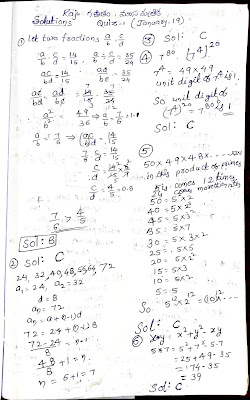 Raju గణితం : మాస పత్రిక
Solutions Quiz - (January, 19)
① let two fractions a/b, c/d
a/b × c/d = 14/15 a/b ÷ c/d = 35/24
ac/bd = 14/15 ad/bc = 35/24
ac/bd × ad/bc = 14/15 × 35/24
a²/b² = 49/36 ⇒ a/b = 7/6 = 1.1
a/b = 7/6 ⇒ ac/bd = 14/15
7/6 × c/d = 14/15
c/d = 14/15 × 6/7
c/d = 4/5 = 0.8
7/6 > 4/5
Sol: B
② Sol: C
24, 32, 40, 48, 56, 64, 72
a₁ = 24, a₂ = 32
d = 8
aₙ = 72
aₙ = a + (n-1)d
72 = 24 + (n-1)8
72-24/8 = (n-1)
48/8 + 1 = n
n = 6+1 = 7
③ Sol: C
④ 7⁸⁰ (7⁴)²⁰
7⁴ = 49 × 49
unit digit of 7⁴ is 1.
So unit digit of
(7⁴)²⁰ = 7⁸⁰ is 1
Sol: C
⑤
50 × 49 × 48 × ......
in this product of primes
5's comes 12 times
50 = 5 × 5 × 2
40 = 5 × 2³
45 = 5 × 3²
35 = 5 × 7
30 = 5 × 3 × 2
25 = 5 × 5
20 = 5 × 2²
15 = 5 × 3
10 = 5 × 2
5 = 5
So 5¹² × 2¹² = (10)¹²...
Sol: C
⑥ x*y = x² + y² - xy
5*7 = 5² + 7² - 5·7
= 25 + 49 - 35
= 74 - 35
= 39
Sol: C